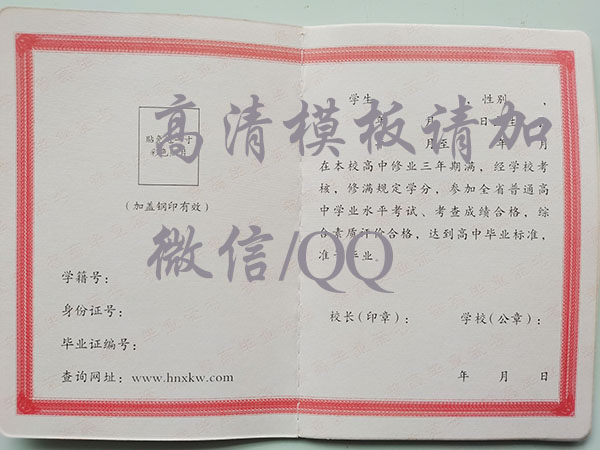 高清模板请加
微信/QQ
(加盖钢印有效)
学籍号：
身份证号：
毕业证编号：
查询网址：www.hnxkw.com
学生 ，性别 ，
月 日
月至 年 月
在本校高中修业三年期满，经学校考
核，修满规定学分，参加全省普通高
中学业水平考试、考查成绩合格，综
合素质评价合格，达到高中毕业标准，
准予毕业。
校长(印章)： 学校(公章)：
年 月 日